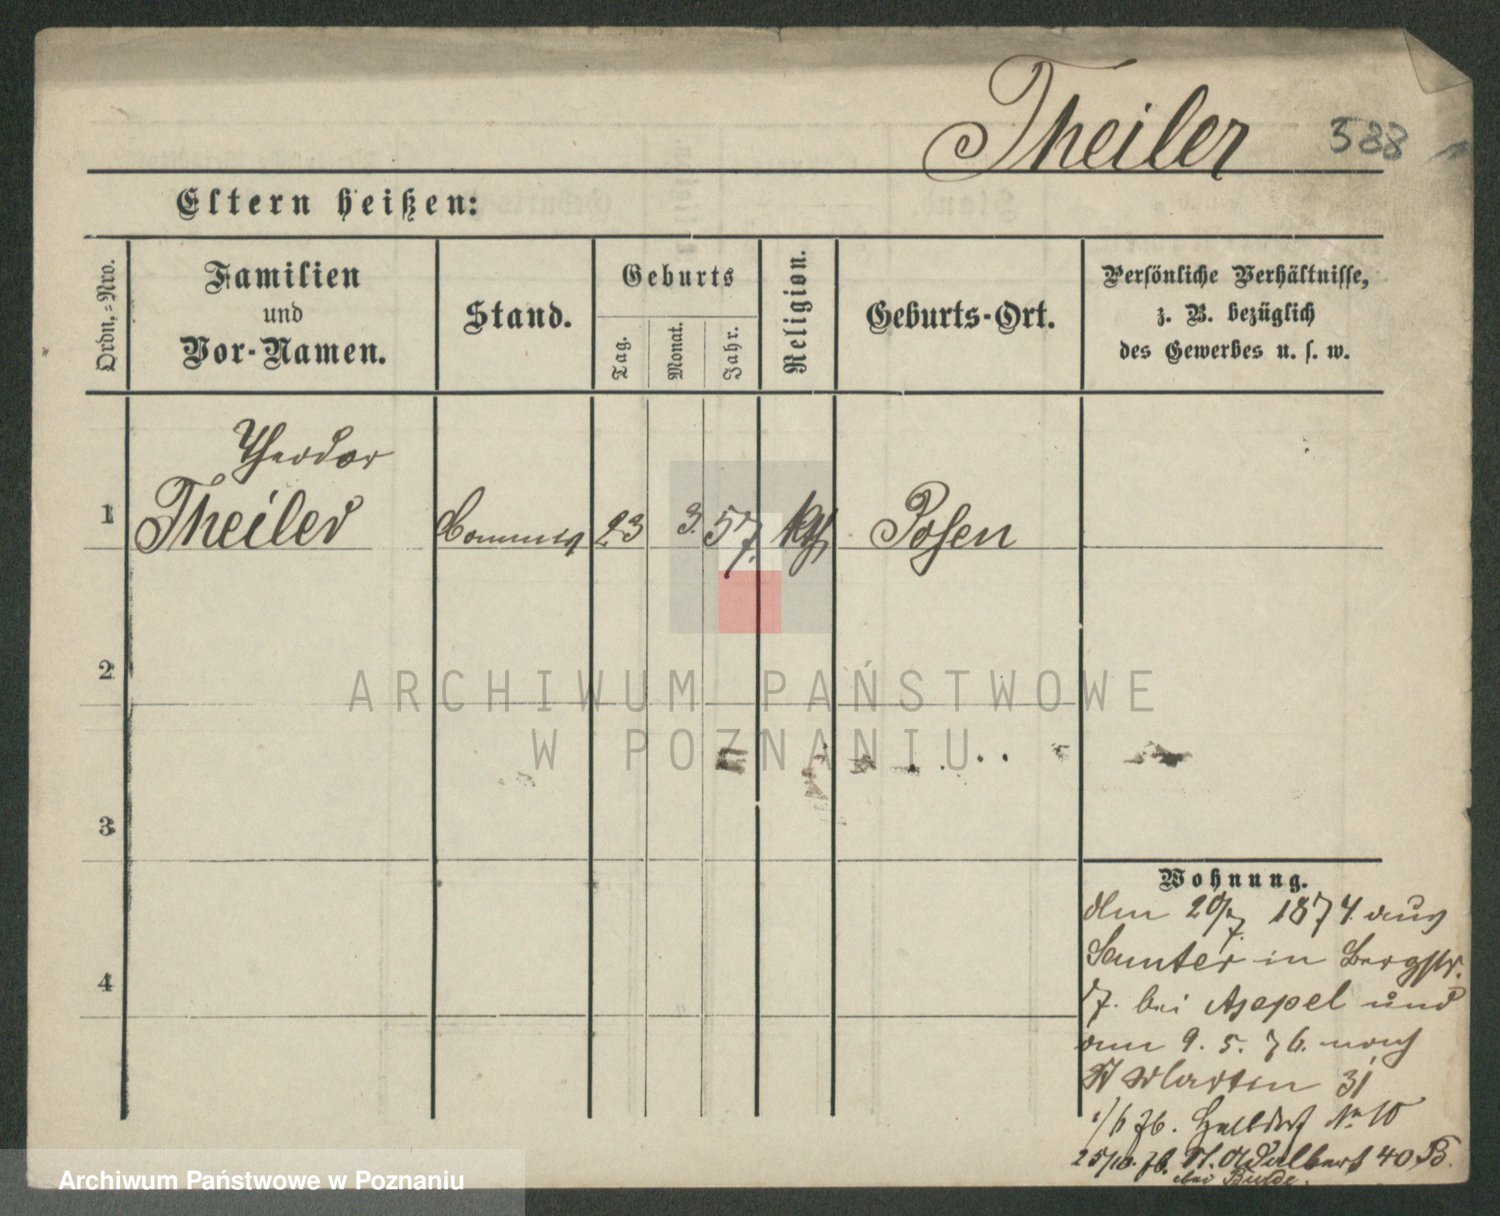 Theiler 388
Eltern heißen:
Ordn.-Nro.
Familien
und
Vor-Namen.
Stand.
Geburts
Tag.
Monat.
Jahr.
Religion.
Geburts-Ort.
Persönliche Verhältnisse,
z. B. bezüglich
des Gewerbes u. s. w.
Theodor
1 Theiler Commis 23 3. 57. kth Posen
2
3
4
Wohnung.
den 20/7. 1874. aus
Samter in Bergstr.
7. bei Appel und
am 9. 5. 76. nach
St Martin 31
1/6 76. Halbdorf No 10
25/10. 76. St. Adalbert 40 B.
bei
ARCHIWUM PAŃSTWOWE
W POZNANIU
Archiwum Państwowe w Poznaniu